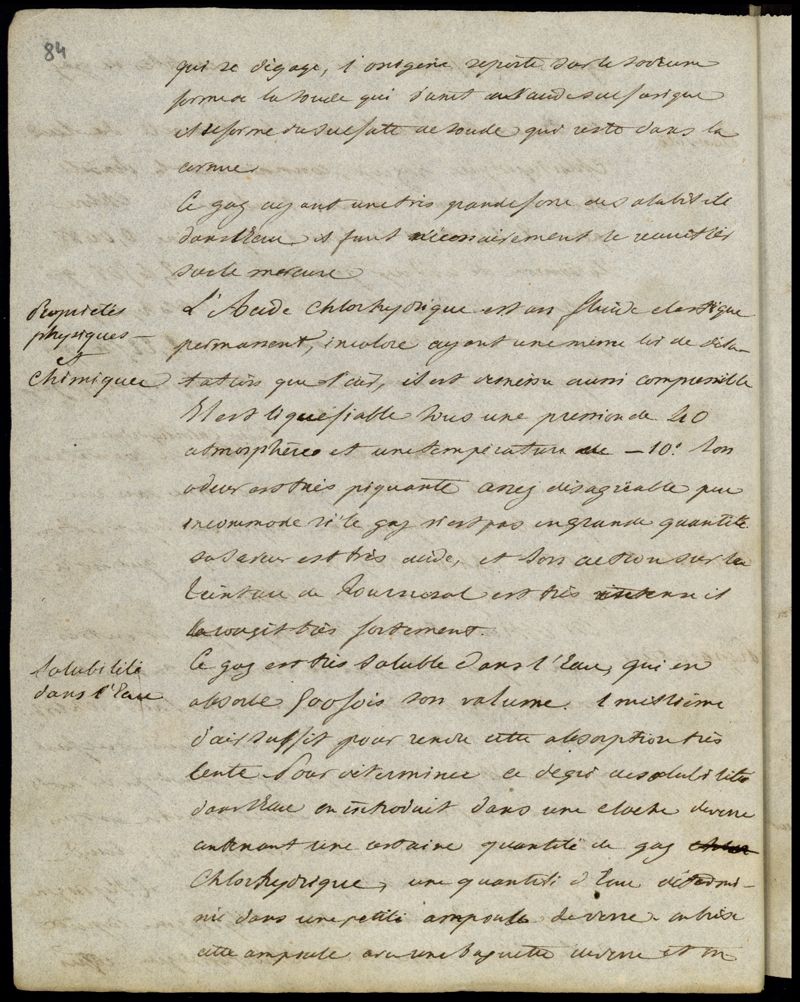 84
qui se dégage, l'oxigène reporté sur le sodium
forme de la soude qui s'unit à l'acide sulfurique
et il se forme du sulfate de soude qui reste dans la
cornue.
Ce gaz ayant une très grande force de solubilité
dans l'Eau, il faut nécessairement le recueillir
sur le mercure
Propriétés
physiques
et
chimiques
L'Acide Chlorhydrique est un fluide élastique
permanent, incolore ayant une même loi de dila-
tation que l'air, il est aussi compressible
Il est liquéfiable sous une pression de 40
atmosphères et une température de -10° Son
odeur est très piquante assez désagréable peu
incommode si le gaz n'est pas en grande quantité
sa saveur est très acide, et son action sur la
teinture de Tournesol est très intense il
la rougit très fortement.
Solubilité
dans l'Eau
Ce gaz est très soluble dans l'Eau, qui en
absorbe 500 fois son volume. 1 millième
d'air suffit pour rendre cette absorption très
lente. Pour déterminer ce degré de solubilité
dans l'Eau on introduit dans une cloche de verre
contenant une certaine quantité de gaz
Chlorhydrique, une quantité d'Eau détermi-
née dans une petite ampoule de verre on brise
cette ampoule avec une baguette de verre et on